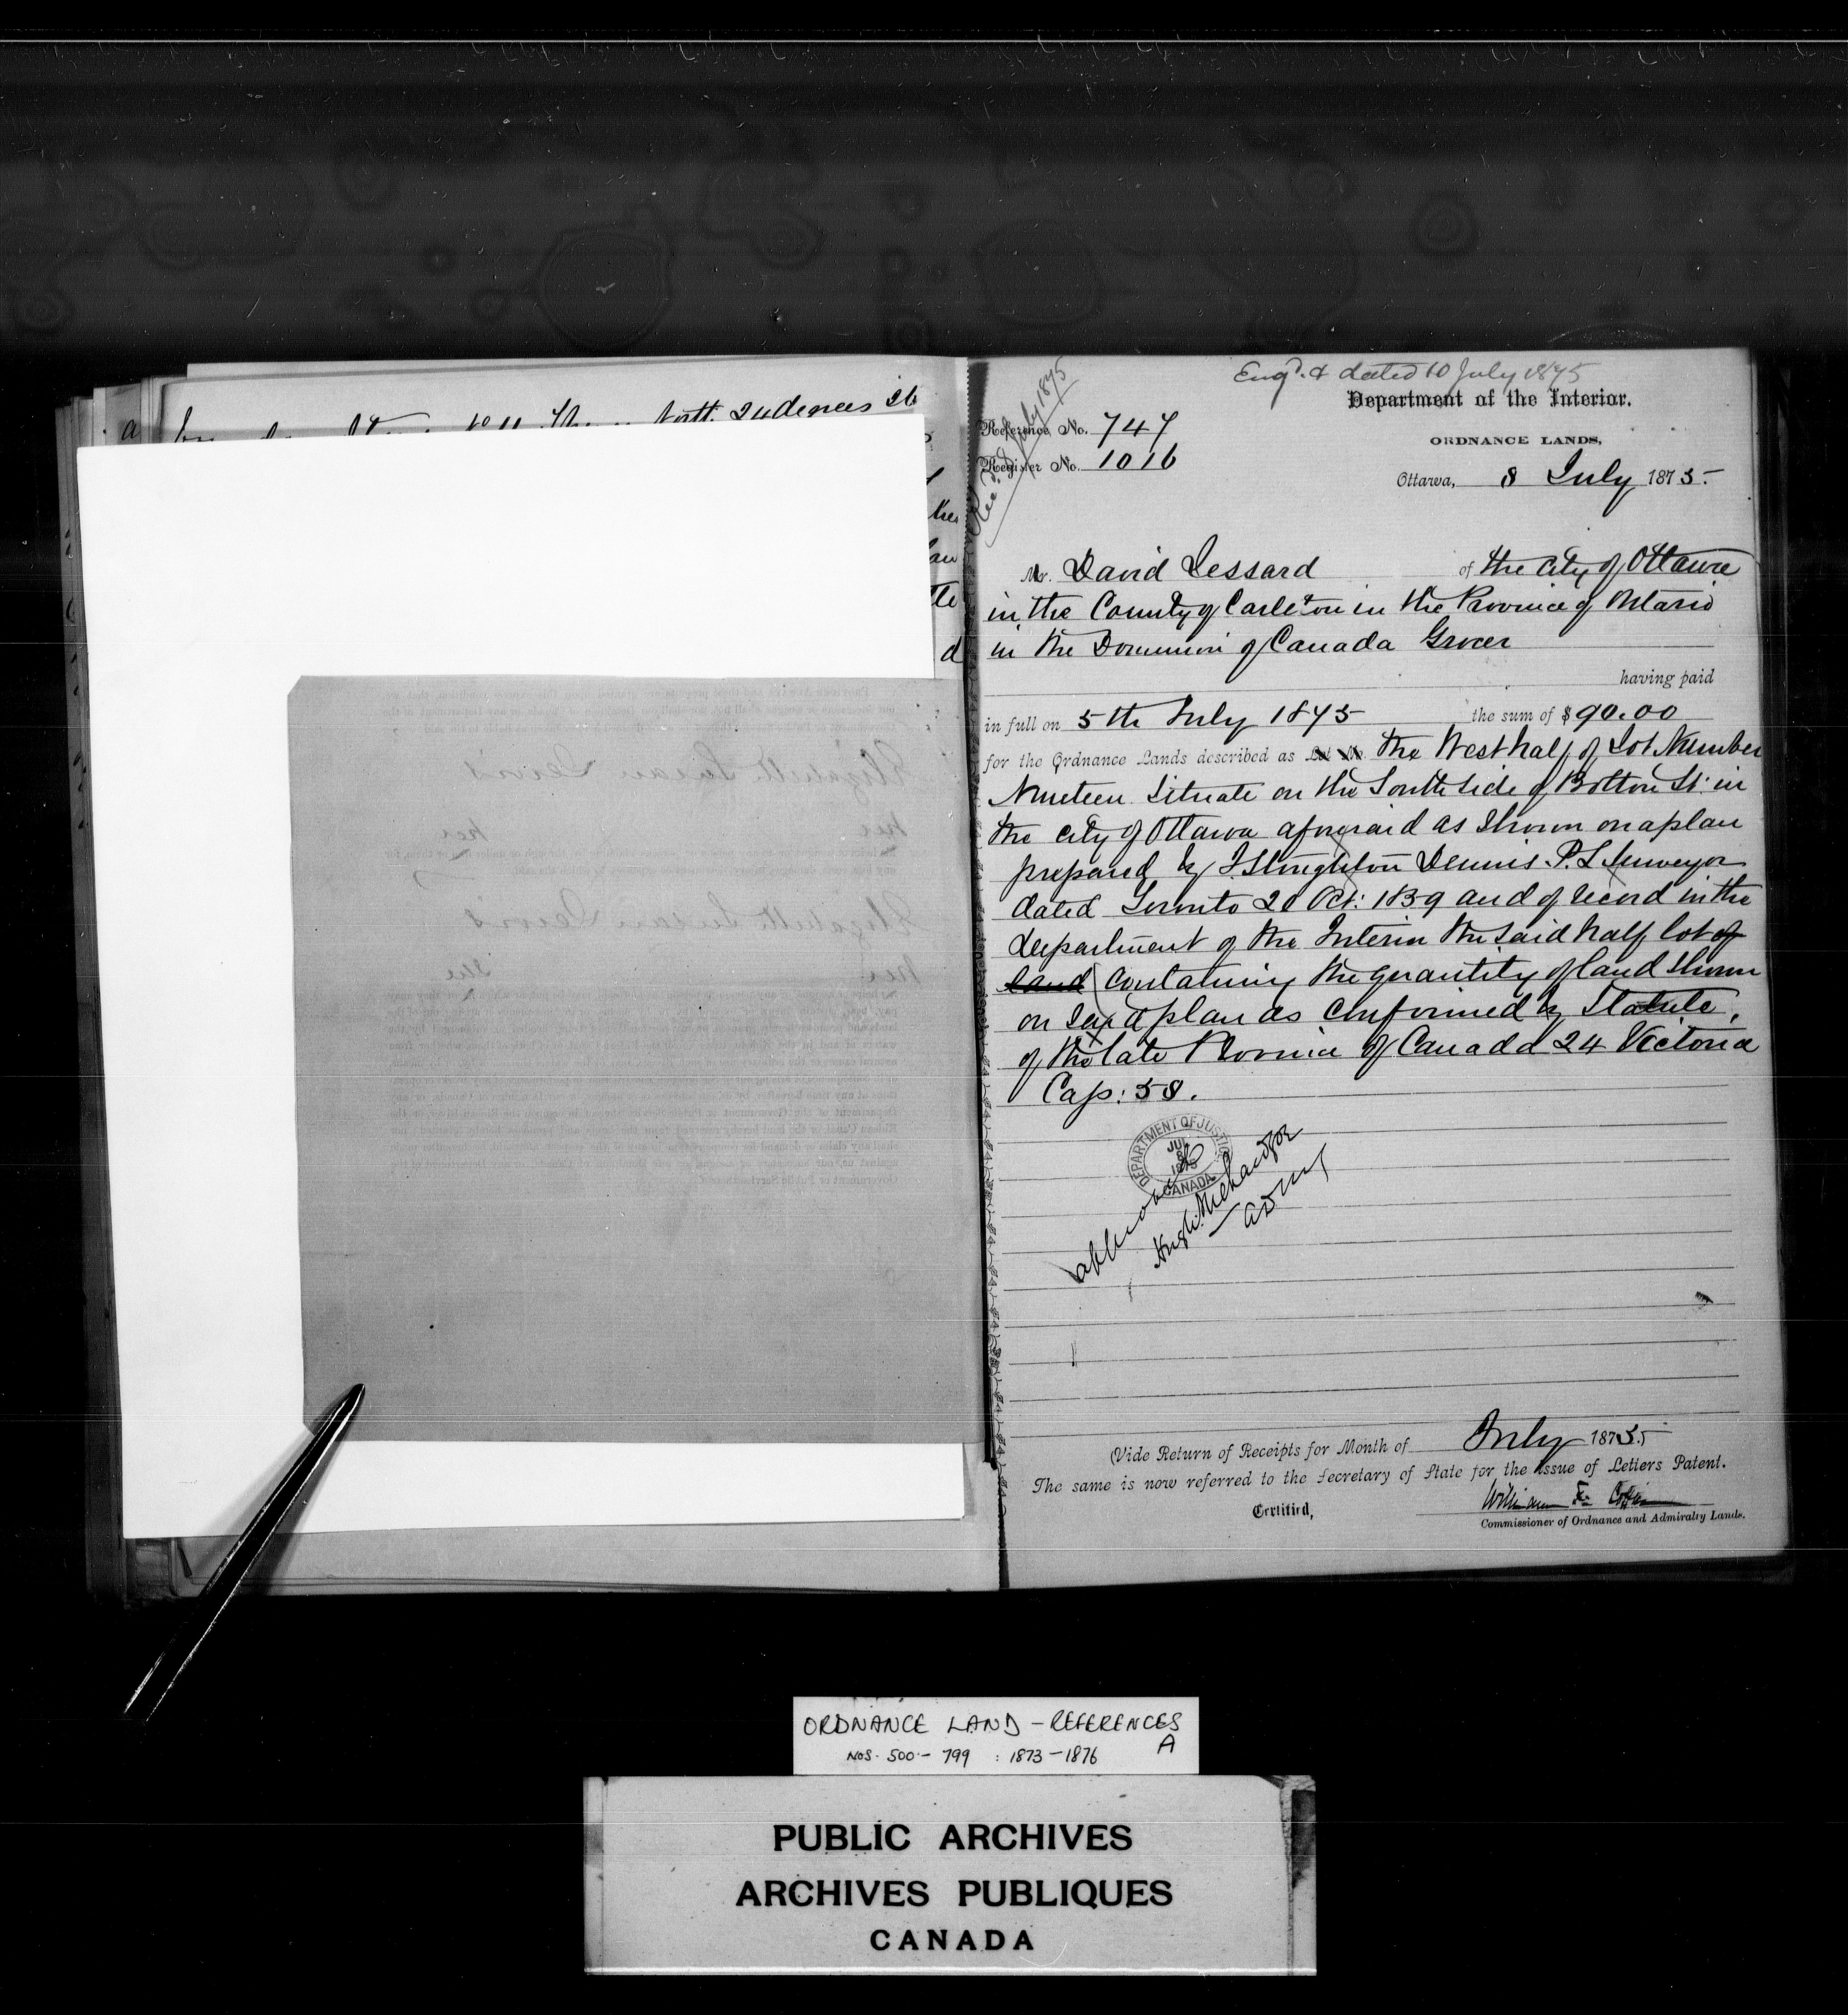 Eng'd. & dated 10 July 1875
Department of the Interior.
ORDNANCE LANDS,
Reference No. 747
Register No. 1016
Ottawa, 8 July 1875.
Mr. David Lessard of the City of Ottawa
in the County of Carleton in the Province of Ontario
in the Dominion of Canada Grocer
having paid
in full on 5th July 1875 the sum of $90.00
for the Ordnance Lands described as Lot No. the West half of Lot Number
Nineteen Situate on the South side of Bolton St. in
the City of Ottawa aforesaid as shown on a plan
prepared by J. Stoughton Dennis P.L. Surveyor
dated Toronto 20 Oct: 1859 and of record in the
department of the Interior the said half lot of
land containing the quantity of land shown
on said plan as confirmed by Statute,
of the late Province of Canada 24 Victoria
Cap: 58.
DEPARTMENT OF JUSTICE
JUL
1875
CANADA
approved
July 1875
(Vide Return of Receipts for Month of July 1875.)
The same is now referred to the Secretary of State for the issue of Letters Patent.
Certified,
William F. Coffin
Commissioner of Ordnance and Admiralty Lands.
ORDNANCE LAND - REFERENCES
NOS. 500 - 799 : 1873 - 1876 A
PUBLIC ARCHIVES
ARCHIVES PUBLIQUES
CANADA